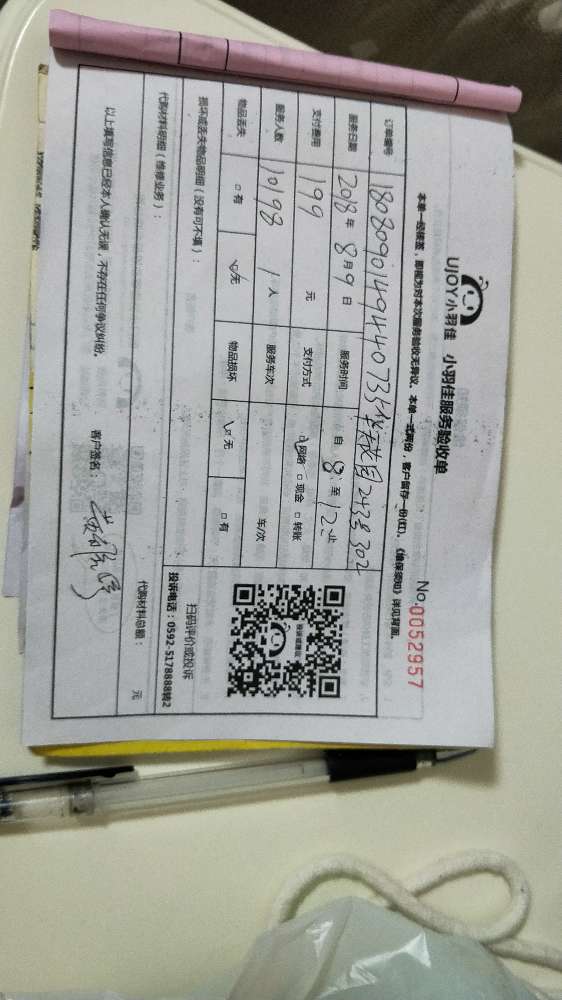 UJOY小羽佳 小羽佳服务验收单
No.0052957
本单一经接签，即视为对本次服务验收无异议。本单一式两份，客户留存一份(红)。《维保须知》详见背面。
订单编号 180809014944073 243号302
服务日期 2018年 8月9日 服务时间 自 8 至 12止
支付费用 199 元 支付方式 ☑网络 □现金 □转账
服务人数 10198 1人 服务车次 车/次
物品丢失 □有 ☑无 物品损坏 ☑无 □有
损坏或丢失物品明细（没有可不填）：
投诉或建议
扫码评价或投诉
投诉电话：0592-5178888转2
代购材料明细（维修业务）：
代购材料总额： 元
以上填写信息已经本人确认无误，不存在任何争议纠纷。 客户签名：